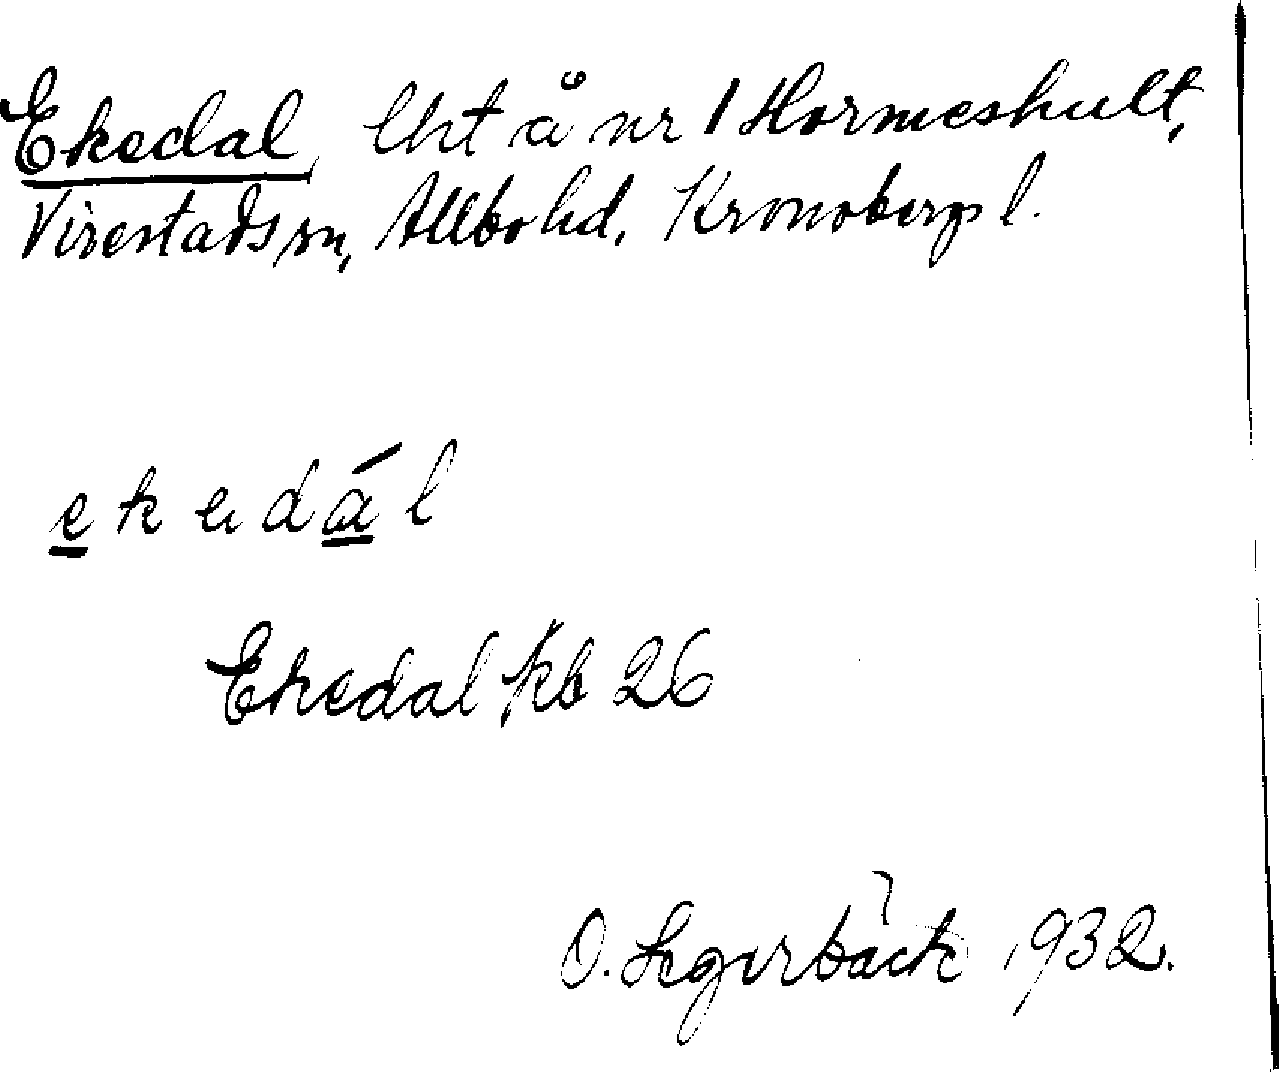 Ekedal, lht å nr 1 Hormeshult,
Virestads sn, Allbo hd, Kronobergs l.
e k e d á l
Ekedal kb 26
O. Segerbäck 1932.